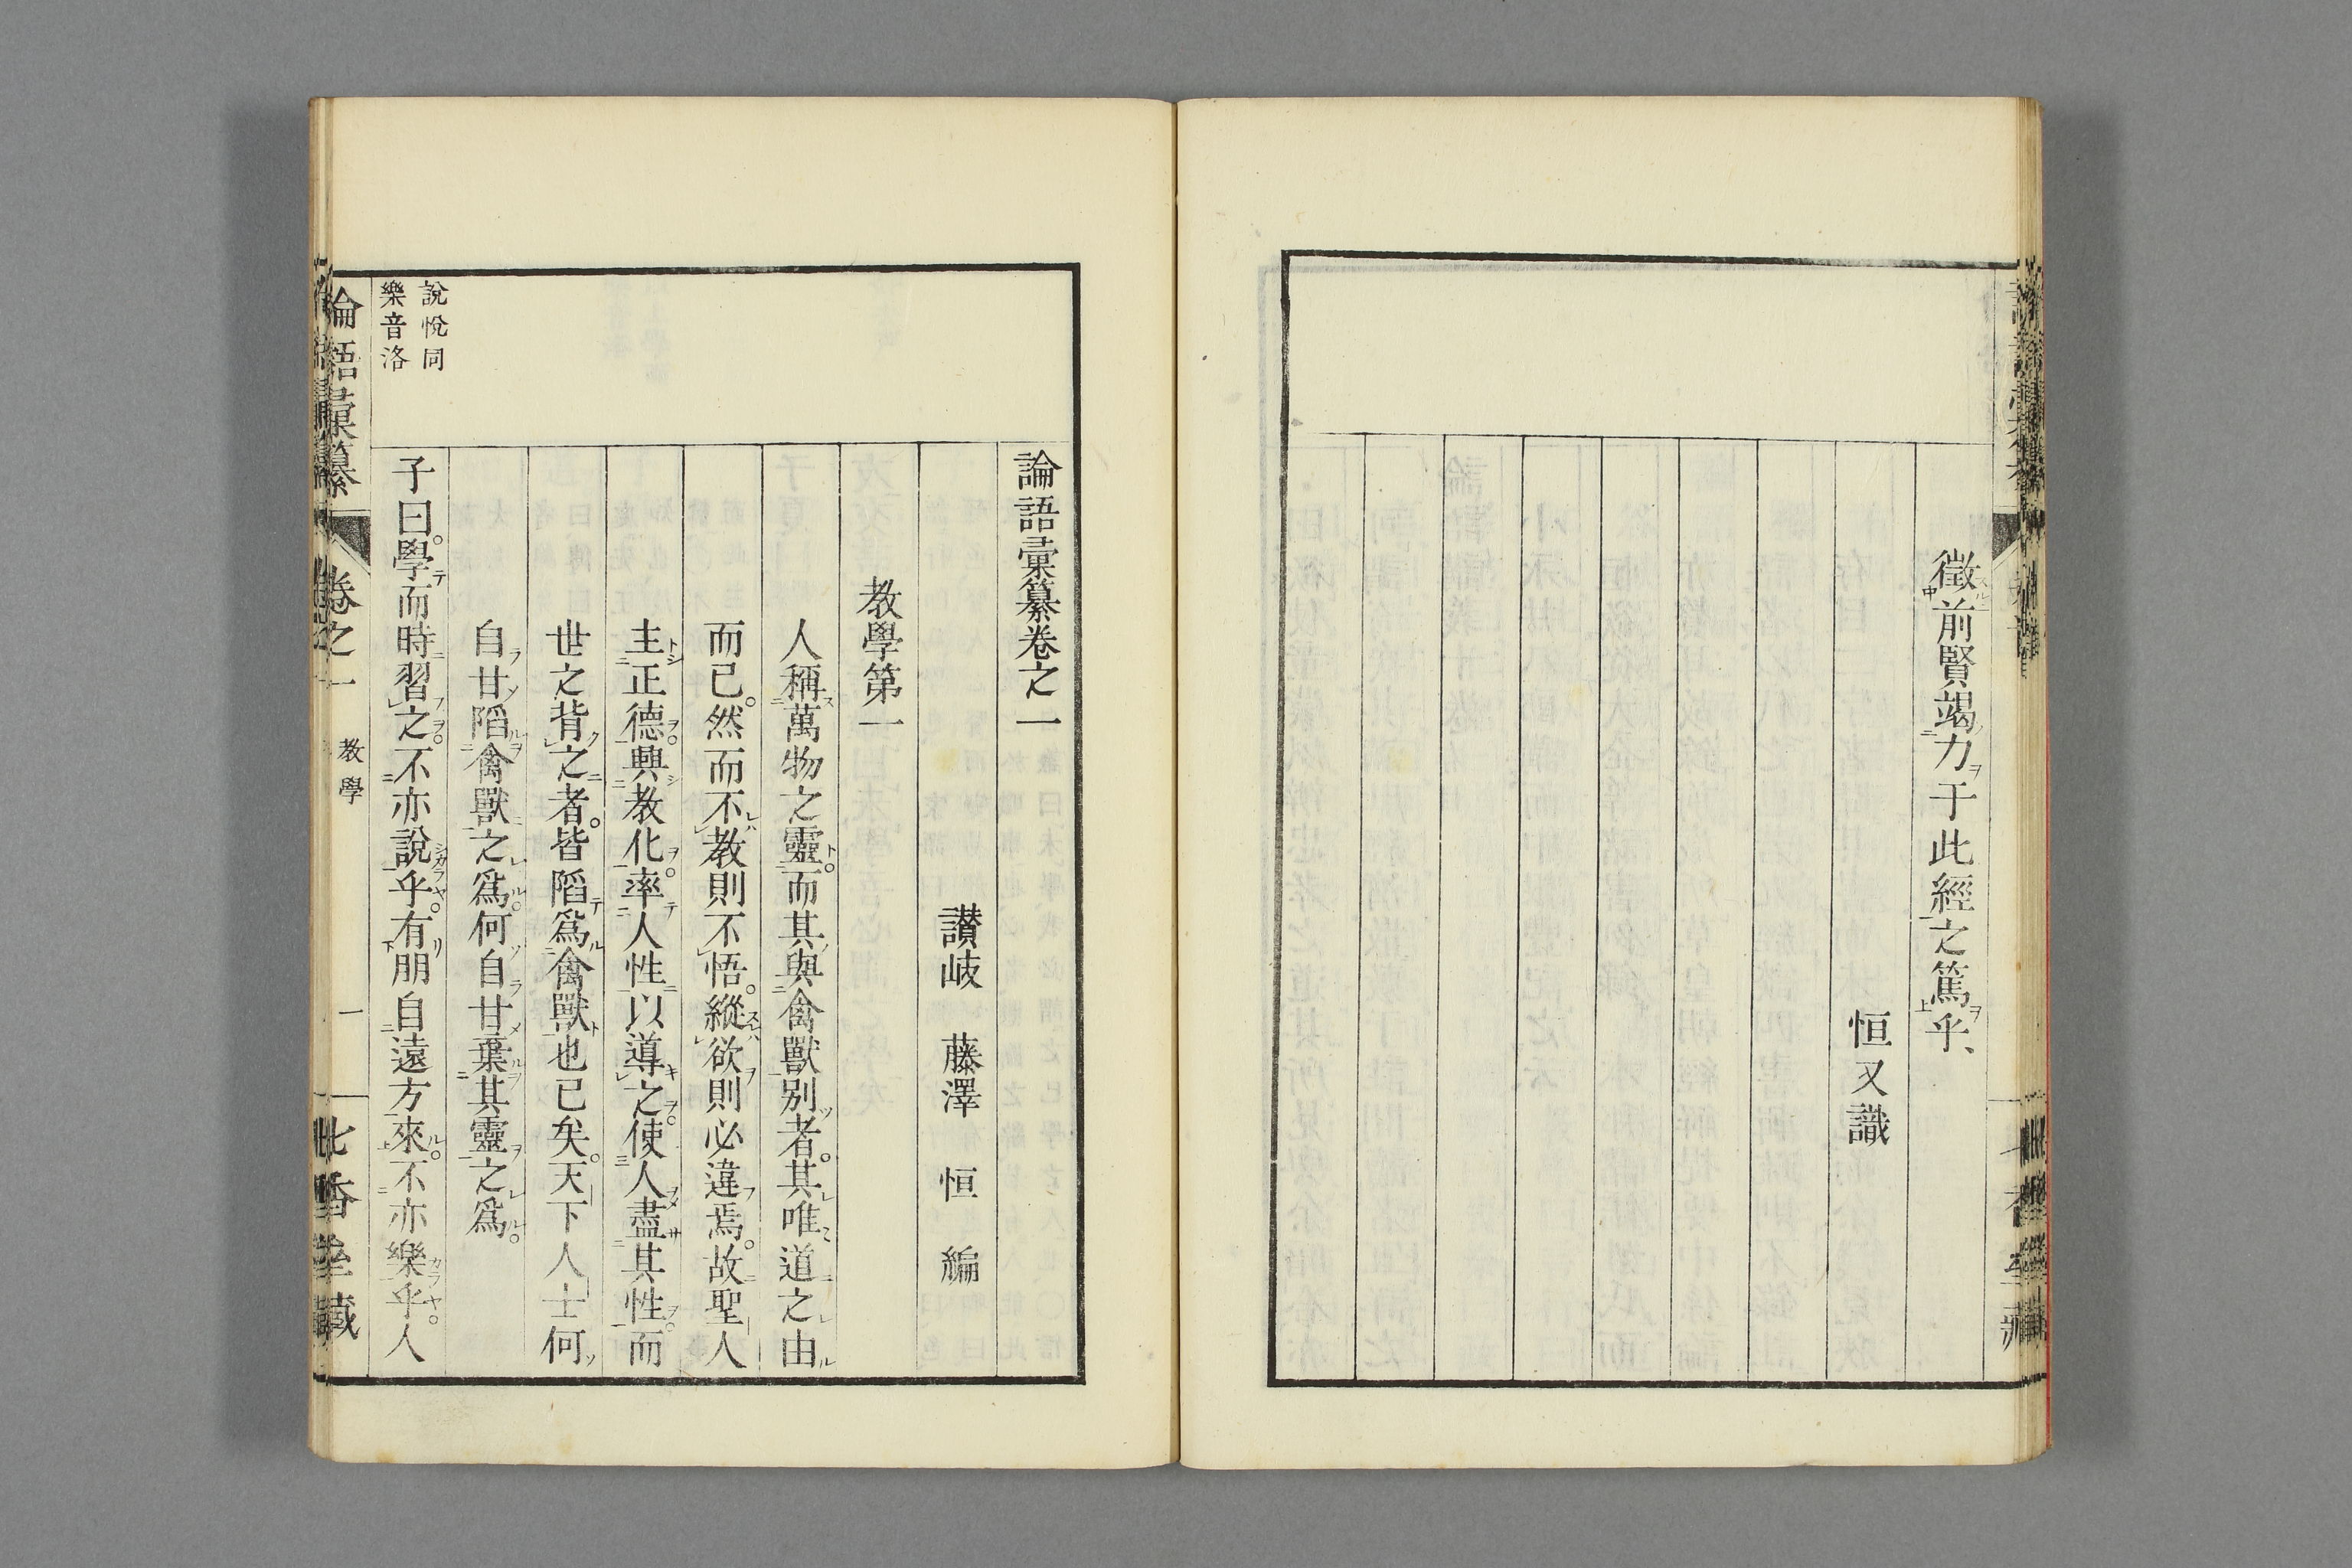 徵前賢竭力于此經之篤乎、
恒又識
論語彙纂卷之一
讃岐 藤澤 恒 編
教學第一
人稱萬物之靈。而其與禽獸別者。其唯道之由
而已。然而不教則不悟。縱欲則必違焉。故聖人
主正德興教化。率人性以導之。使人盡其性。而
世之背之者。皆陷爲禽獸也已矣。天下人士何
自甘陷禽獸之爲。何自甘棄其靈之爲。
說悅同
樂音洛
子曰。學而時習之。不亦說乎。有朋自遠方來。不亦樂乎。人
論語彙纂 卷之一 教學 一 此香堂藏